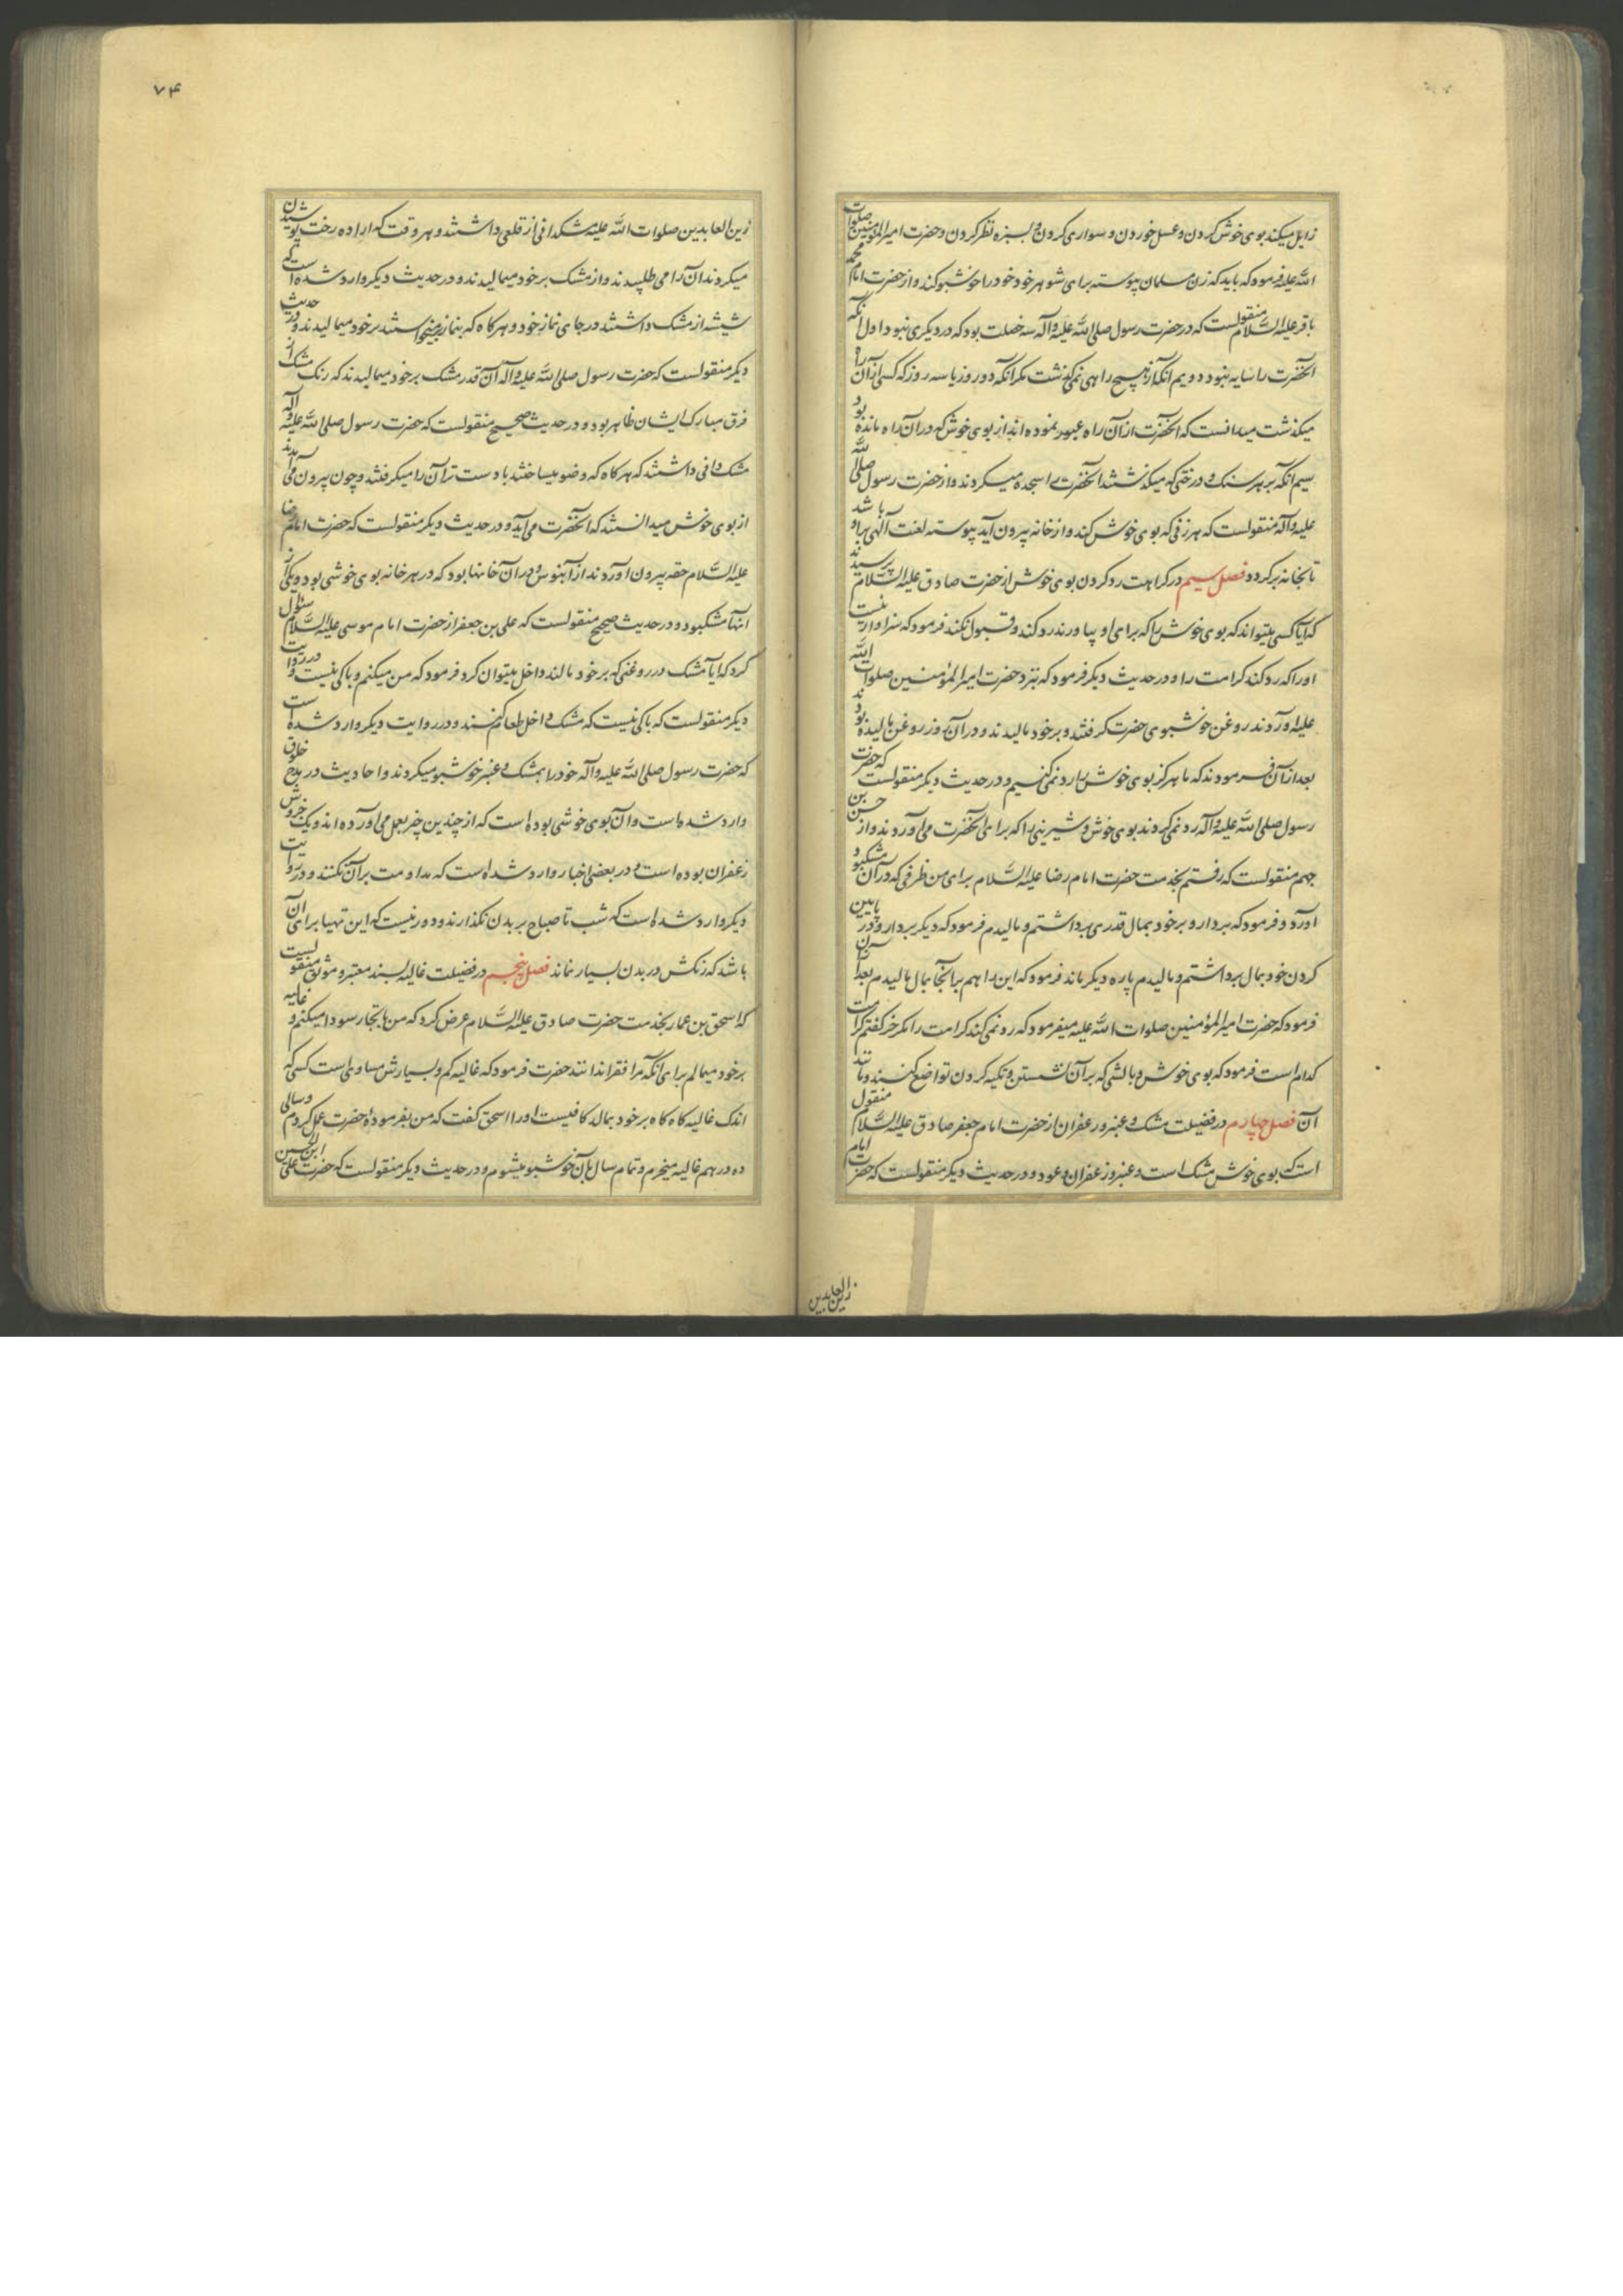 زایل میکند بوی خوش کردن و عسل خوردن و سواری کردن و بسبزه نظر کردن و حضرت امیر المؤمنین صلوات
الله علیه فرمود که باید که زن مسلمان پیوسته برای شوهر خود خود را خوشبو کند و از حضرت امام محمد
باقر علیه السلام منقولست که در حضرت رسول صلی الله علیه و آله سه خصلت بود که در دیگری نبود اول آنکه
آنحضرت را سایه نبود دویم آنکه از هیچ راهی نمیگذشت مگر آنکه دو روز یا سه روز که کسی از آن راه
میگذشت میدانست که آنحضرت از آن راه عبور نموده اند از بوی خوش که در آن راه مانده بود
سیم آنکه بر هر سنک و درختی که میگذشتند آنحضرت را سجده میکردند و از حضرت رسول صلی الله
علیه و آله منقولست که هر زنی که بوی خوش کند و از خانه بیرون آید پیوسته لعنت الهی بر او باشد
تا بخانه برگردد فصل سیم در کراهت رد کردن بوی خوش از حضرت صادق علیه السلام پرسیدند
که آیا کسی میتواند که بوی خوش را که برای او بیاورند رد کند و قبول نکند فرمود که سزاوار نیست
او را که رد کند کرامت را و در حدیث دیگر فرمود که بنزد حضرت امیر المؤمنین صلوات الله
علیه آوردند روغن خوشبوی حضرت گرفتند و بر خود مالیدند و در آن روز روغن مالیده بودند
بعد از آن فرمودند که ما هرگز بوی خوش را رد نمی کنیم و در حدیث دیگر منقولست که حضرت
رسول صلی الله علیه و آله رد نمی کردند بوی خوش و شیرینی را که برای آنحضرت می آوردند و از حسن بن
جهم منقولست که رفتم بخدمت حضرت امام رضا علیه السلام برای من ظرفی که در آن مشک بود
آورد و فرمود که بردار و بر خود بمال قدری برداشتم و مالیدم فرمود که دیگر بردار و در پایین
کردن خود بمال برداشتم و مالیدم پاره دیگر ماند فرمود که این را هم بر آنجا بمال مالیدم بعد از آن
فرمود که حضرت امیر المؤمنین صلوات الله علیه میفرمود که رد نمی کند کرامت را مگر خر گفتم کرامت
کدام است فرمود که بوی خوش و بالشی که بر آن نشستن و تکیه کردن تواضع کنند و مانند
آن فصل چهارم در فضیلت مشک و عنبر و زعفران از حضرت امام جعفر صادق علیه السلام منقول
است که بوی خوش مشک است و عنبر و زعفران و عود و در حدیث دیگر منقولست که حضرت امام
زین العابدین
۷۴
زین العابدین صلوات الله علیه مشکدانی از قلعی داشتند و هر وقت که اراده رخت پوشیدن
میکردند آن را می طلبیدند و از مشک بر خود میمالیدند و در حدیث دیگر وارد شده است که
شیشه از مشک داشتند در جای نماز خود و هرگاه که بنماز برمیخواستند بر خود میمالیدند و در حدیث
دیگر منقولست که حضرت رسول صلی الله علیه و آله آن قدر مشک بر خود میمالیدند که رنک مشک از
فرق مبارک ایشان ظاهر بود و در حدیث صحیح منقولست که حضرت رسول صلی الله علیه و آله
مشک دانی داشتند که هرگاه که وضو میساختند با دست تر آن را میگرفتند و چون بیرون می آمدند
از بوی خوش میدانستند که آنحضرت می آید و در حدیث دیگر منقولست که حضرت امام رضا
علیه السلام حقه بیرون آوردند از آبنوس و در آن خانها بود که در هر خانه بوی خوشی بود و یکی از
آنها مشک بود و در حدیث صحیح منقولست که علی بن جعفر از حضرت امام موسی علیه السلام سئوال
کرد که آیا مشک در روغنی که بر خود مالند داخل میتوان کرد فرمود که من میکنم و باکی نیست و در روایت
دیگر منقولست که باکی نیست که مشک داخل طعام کنند و در روایت دیگر وارد شده است
که حضرت رسول صلی الله علیه و آله خود را بمشک و عنبر خوشبو میکردند و احادیث در مدح خلوق
وارد شده است و آن بوی خوشی بوده است که از چندین چیز بعمل می آورده اند و یک جزوش
زعفران بوده است و در بعضی اخبار وارد شده است که مداومت بر آن نکنند و در روایت
دیگر وارد شده است که شب تا صباح بر بدن نگذارند و دور نیست که این نهیها برای آن
باشد که رنکش در بدن بسیار نماند فصل پنجم در فضیلت غالیه بسند معتبر و موثق منقولست
که اسحق بن عمار بخدمت حضرت صادق علیه السلام عرض کرد که من با تجار سودا میکنم و غالیه
بر خود میمالم برای آنکه مرا فقر ندانند حضرت فرمود که غالیه کم و بسیارش مساوی است کسی که
اندک غالیه گاه گاه بر خود بمالد کافیست او را اسحق گفت که من بفرموده حضرت عمل کردم و سالی
ده درهم غالیه میخرم و تمام سال بآن خوشبو میشوم و در حدیث دیگر منقولست که حضرت علی ابن الحسین